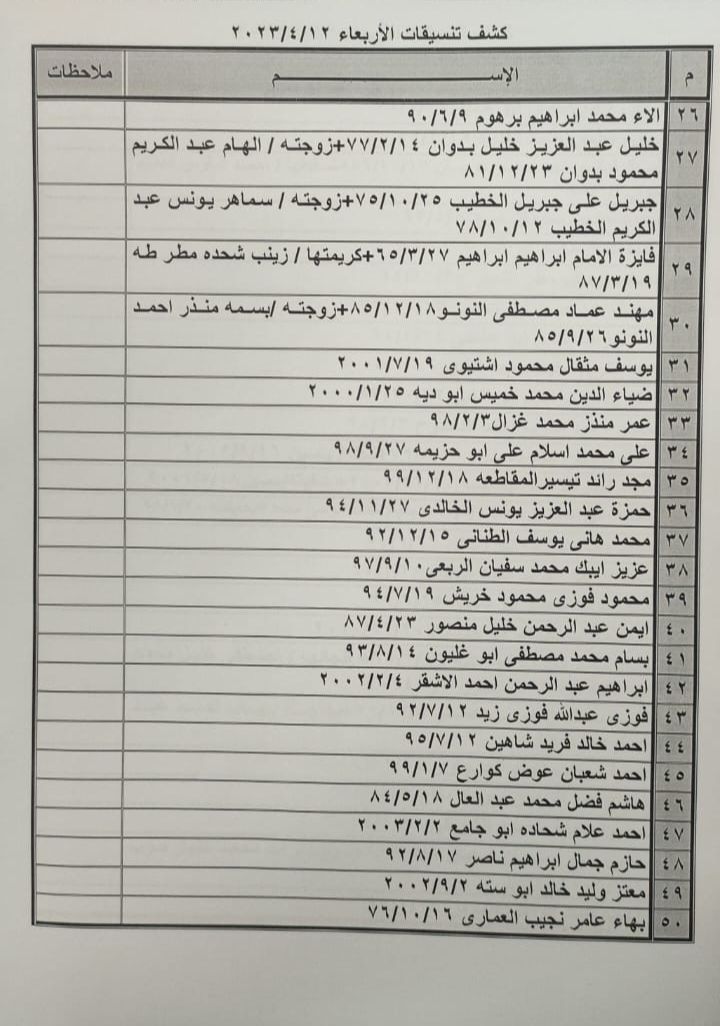 كشف تنسيقات الأربعاء ٢٠٢٣/٤/١٢
م الإســـــــــم ملاحظات
٢٦ الاء محمد ابراهيم برهوم ٩٠/٦/٩
٢٧ خليل عبد العزيز خليل بدوان ٧٧/٢/١٤+زوجته / الهام عبد الكريم
محمود بدوان ٨١/١٢/٢٣
٢٨ جبريل على جبريل الخطيب ٧٥/١٠/٢٥+زوجته / سماهر يونس عبد
الكريم الخطيب ٧٨/١٠/١٢
٢٩ فايزة الامام ابراهيم ابراهيم ٦٥/٣/٢٧+كريمتها / زينب شحده مطر طه
٨٧/٣/١٩
٣٠ مهند عماد مصطفى النونو٨٥/١٢/١٨+زوجته /بسمه منذر احمد
النونو٨٥/٩/٢٦
٣١ يوسف مثقال محمود اشتيوى ٢٠٠١/٧/١٩
٣٢ ضياء الدين محمد خميس ابو ديه ٢٠٠٠/١/٢٥
٣٣ عمر منذز محمد غزال٩٨/٢/٣
٣٤ على محمد اسلام على ابو حزيمه ٩٨/٩/٢٧
٣٥ مجد رائد تيسيرالمقاطعه ٩٩/١٢/١٨
٣٦ حمزة عبد العزيز يونس الخالدى ٩٤/١١/٢٧
٣٧ محمد هانى يوسف الطنانى ٩٢/١٢/١٥
٣٨ عزيز ايبك محمد سفيان الربعى٩٧/٩/١٠
٣٩ محمود فوزى محمود خريش ٩٤/٧/١٩
٤٠ ايمن عبد الرحمن خليل منصور ٨٧/٤/٢٣
٤١ بسام محمد مصطفى ابو غليون ٩٣/٨/١٤
٤٢ ابراهيم عبد الرحمن احمد الاشقر ٢٠٠٢/٢/٤
٤٣ فوزى عبدالله فوزى زيد ٩٢/٧/١٢
٤٤ احمد خالد فريد شاهين ٩٥/٧/١٢
٤٥ احمد شعبان عوض كوارع ٩٩/١/٧
٤٦ هاشم فضل محمد عبد العال ٨٤/٥/١٨
٤٧ احمد علام شحاده ابو جامع ٢٠٠٣/٢/٢
٤٨ حازم جمال ابراهيم ناصر ٩٢/٨/١٧
٤٩ معتز وليد خالد ابو سته ٢٠٠٢/٩/٢
٥٠ بهاء عامر نجيب العمارى ٧٦/١٠/١٦